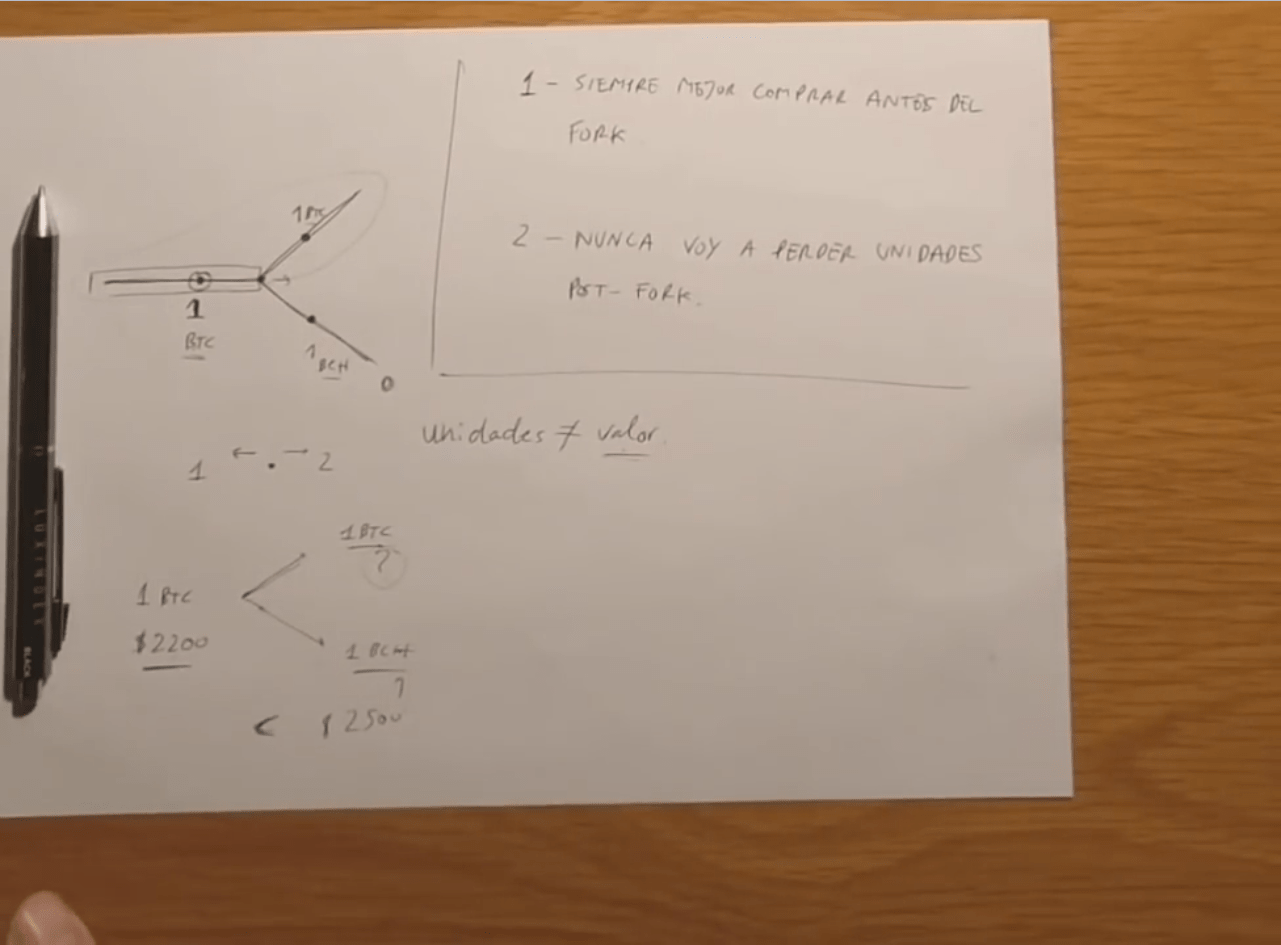 1 - SIEMPRE MEJOR COMPRAR ANTES DEL
FORK
2 - NUNCA VOY A PERDER UNIDADES
POST - FORK.
1 BTC
1
BTC
1 BCH
0
unidades ≠ valor.
1 ← . → 2
1 BTC
?
1 BTC
$2200
1 BCH
?
< $2500
BLACK